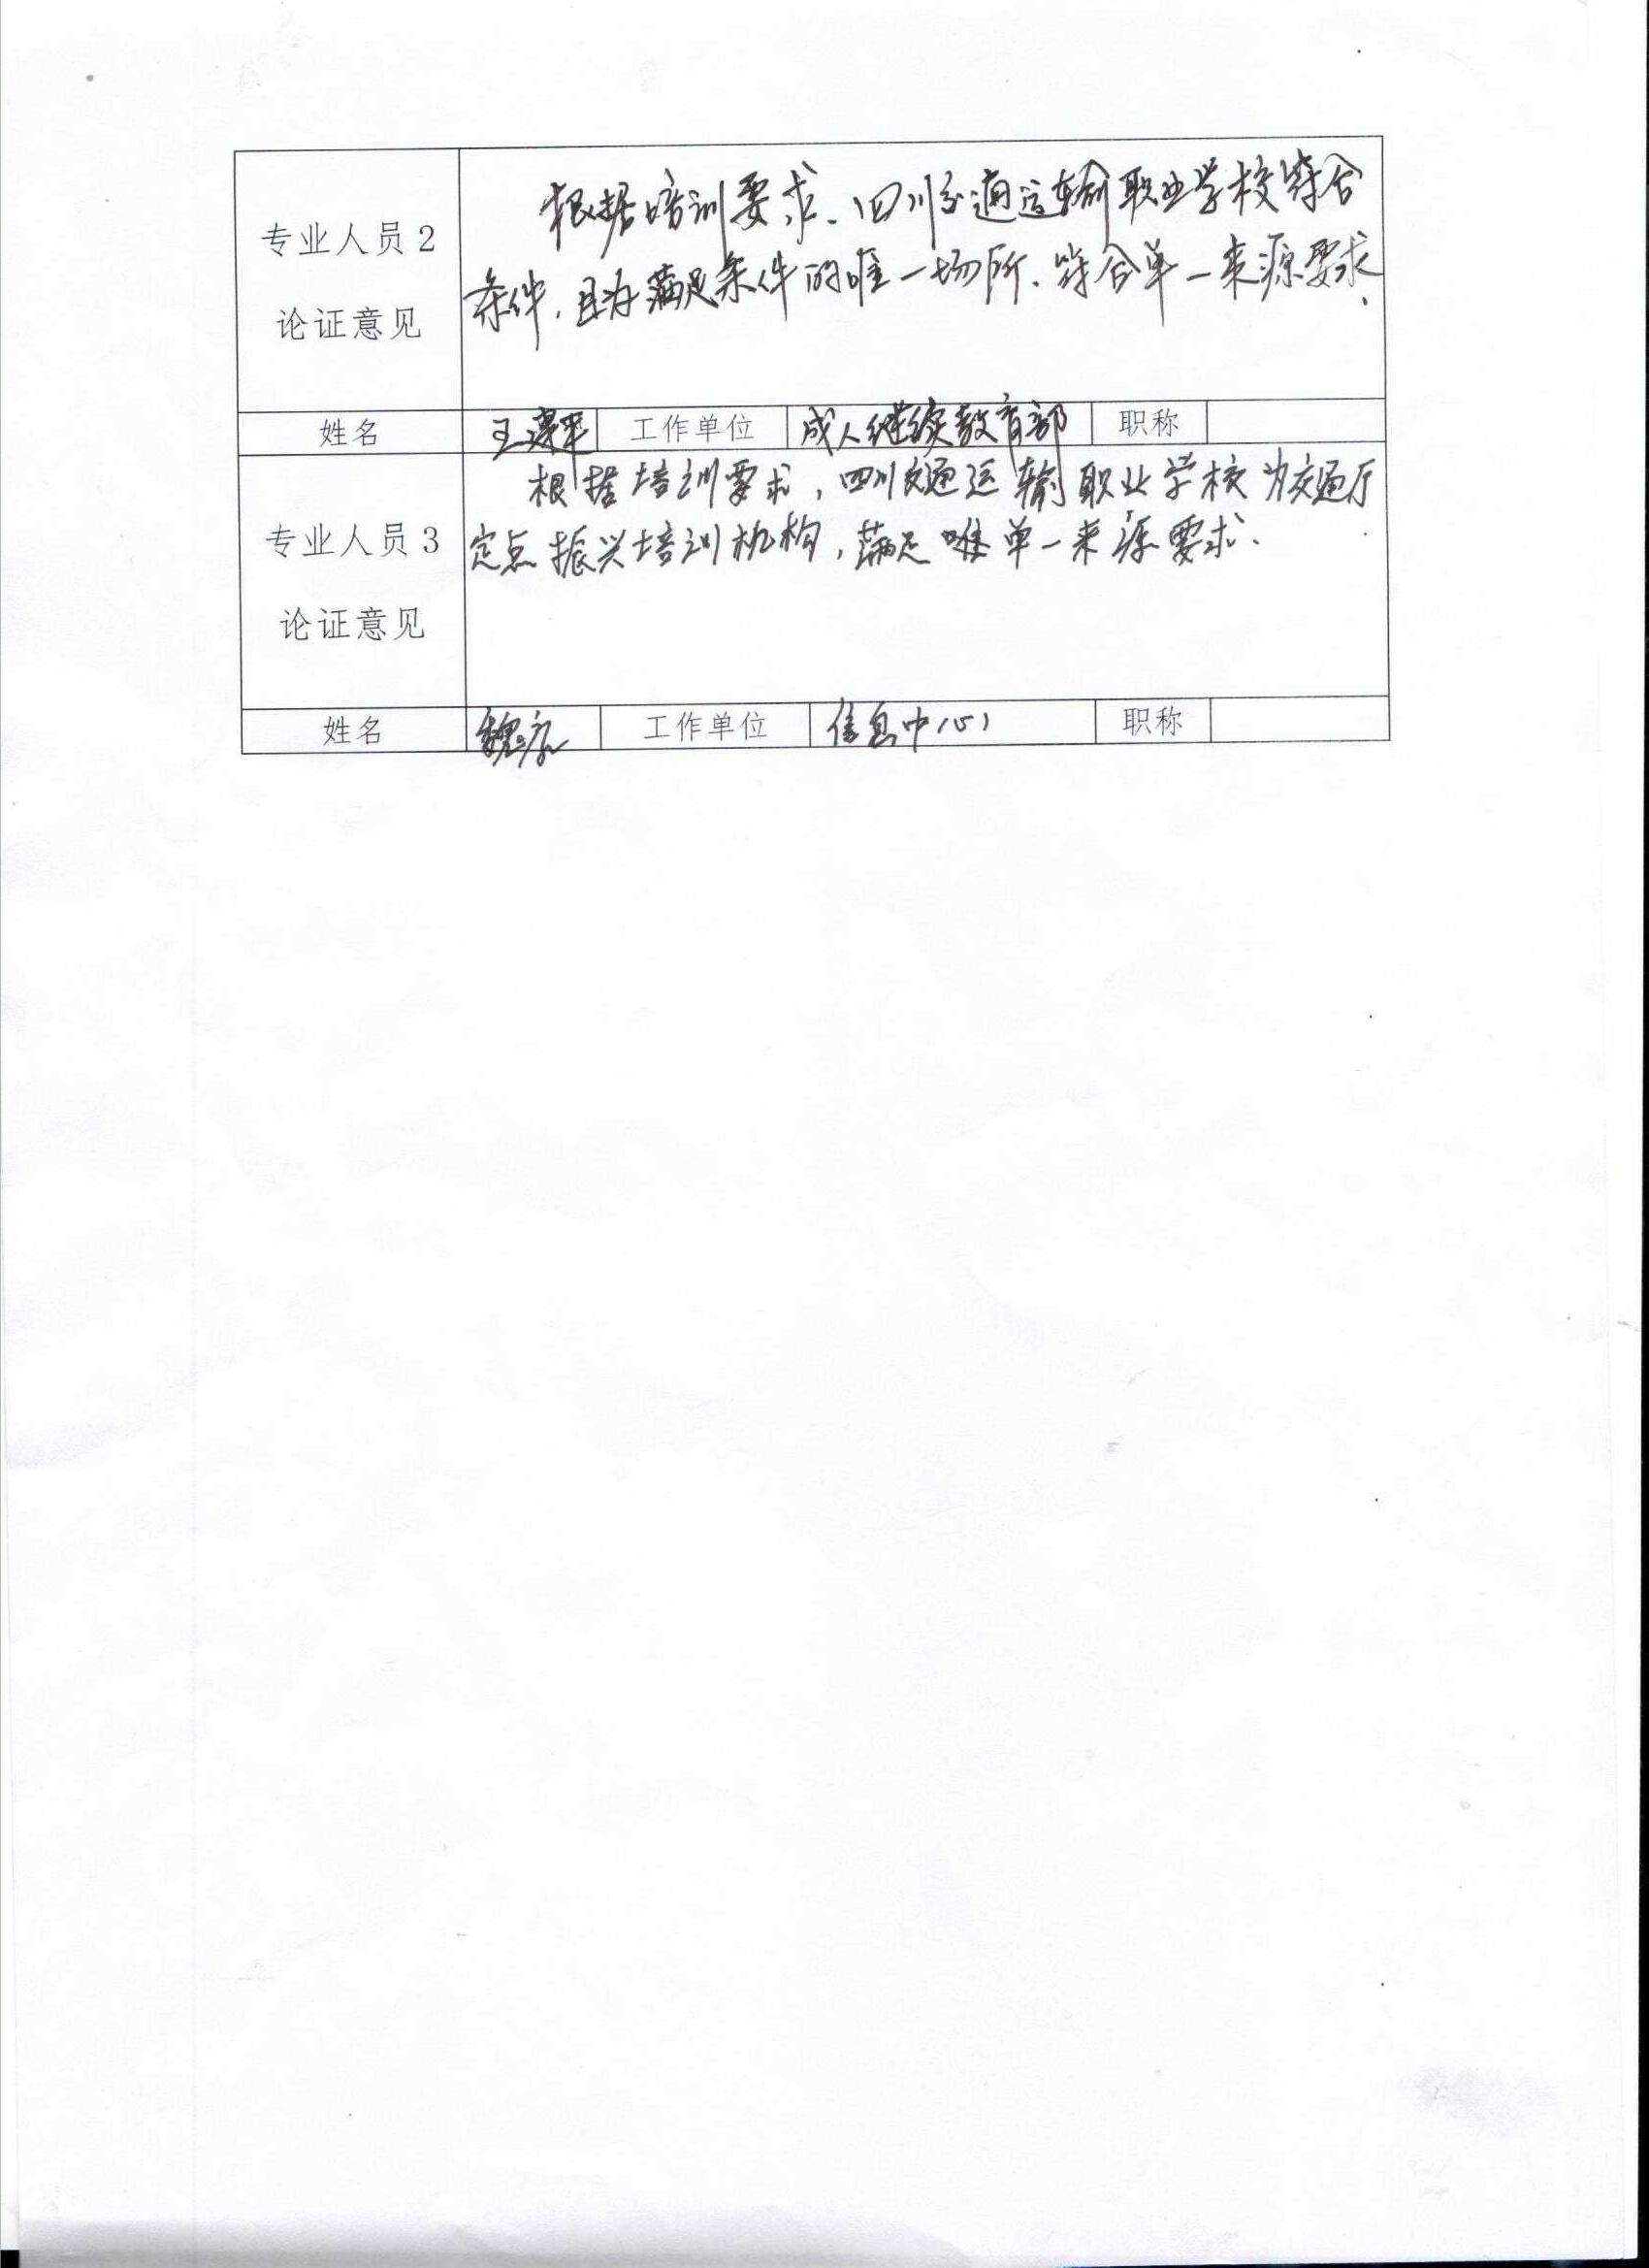 专业人员2
论证意见
根据培训要求、四川交通运输职业学校符合
条件,且为满足条件的唯一场所、符合单一来源要求.
姓名 工作单位 成人继续教育部 职称
专业人员3
论证意见
根据培训要求,四川交通运输职业学校为交通厅
定点振兴培训机构,满足唯单一来源要求.
姓名 工作单位 信息中心 职称